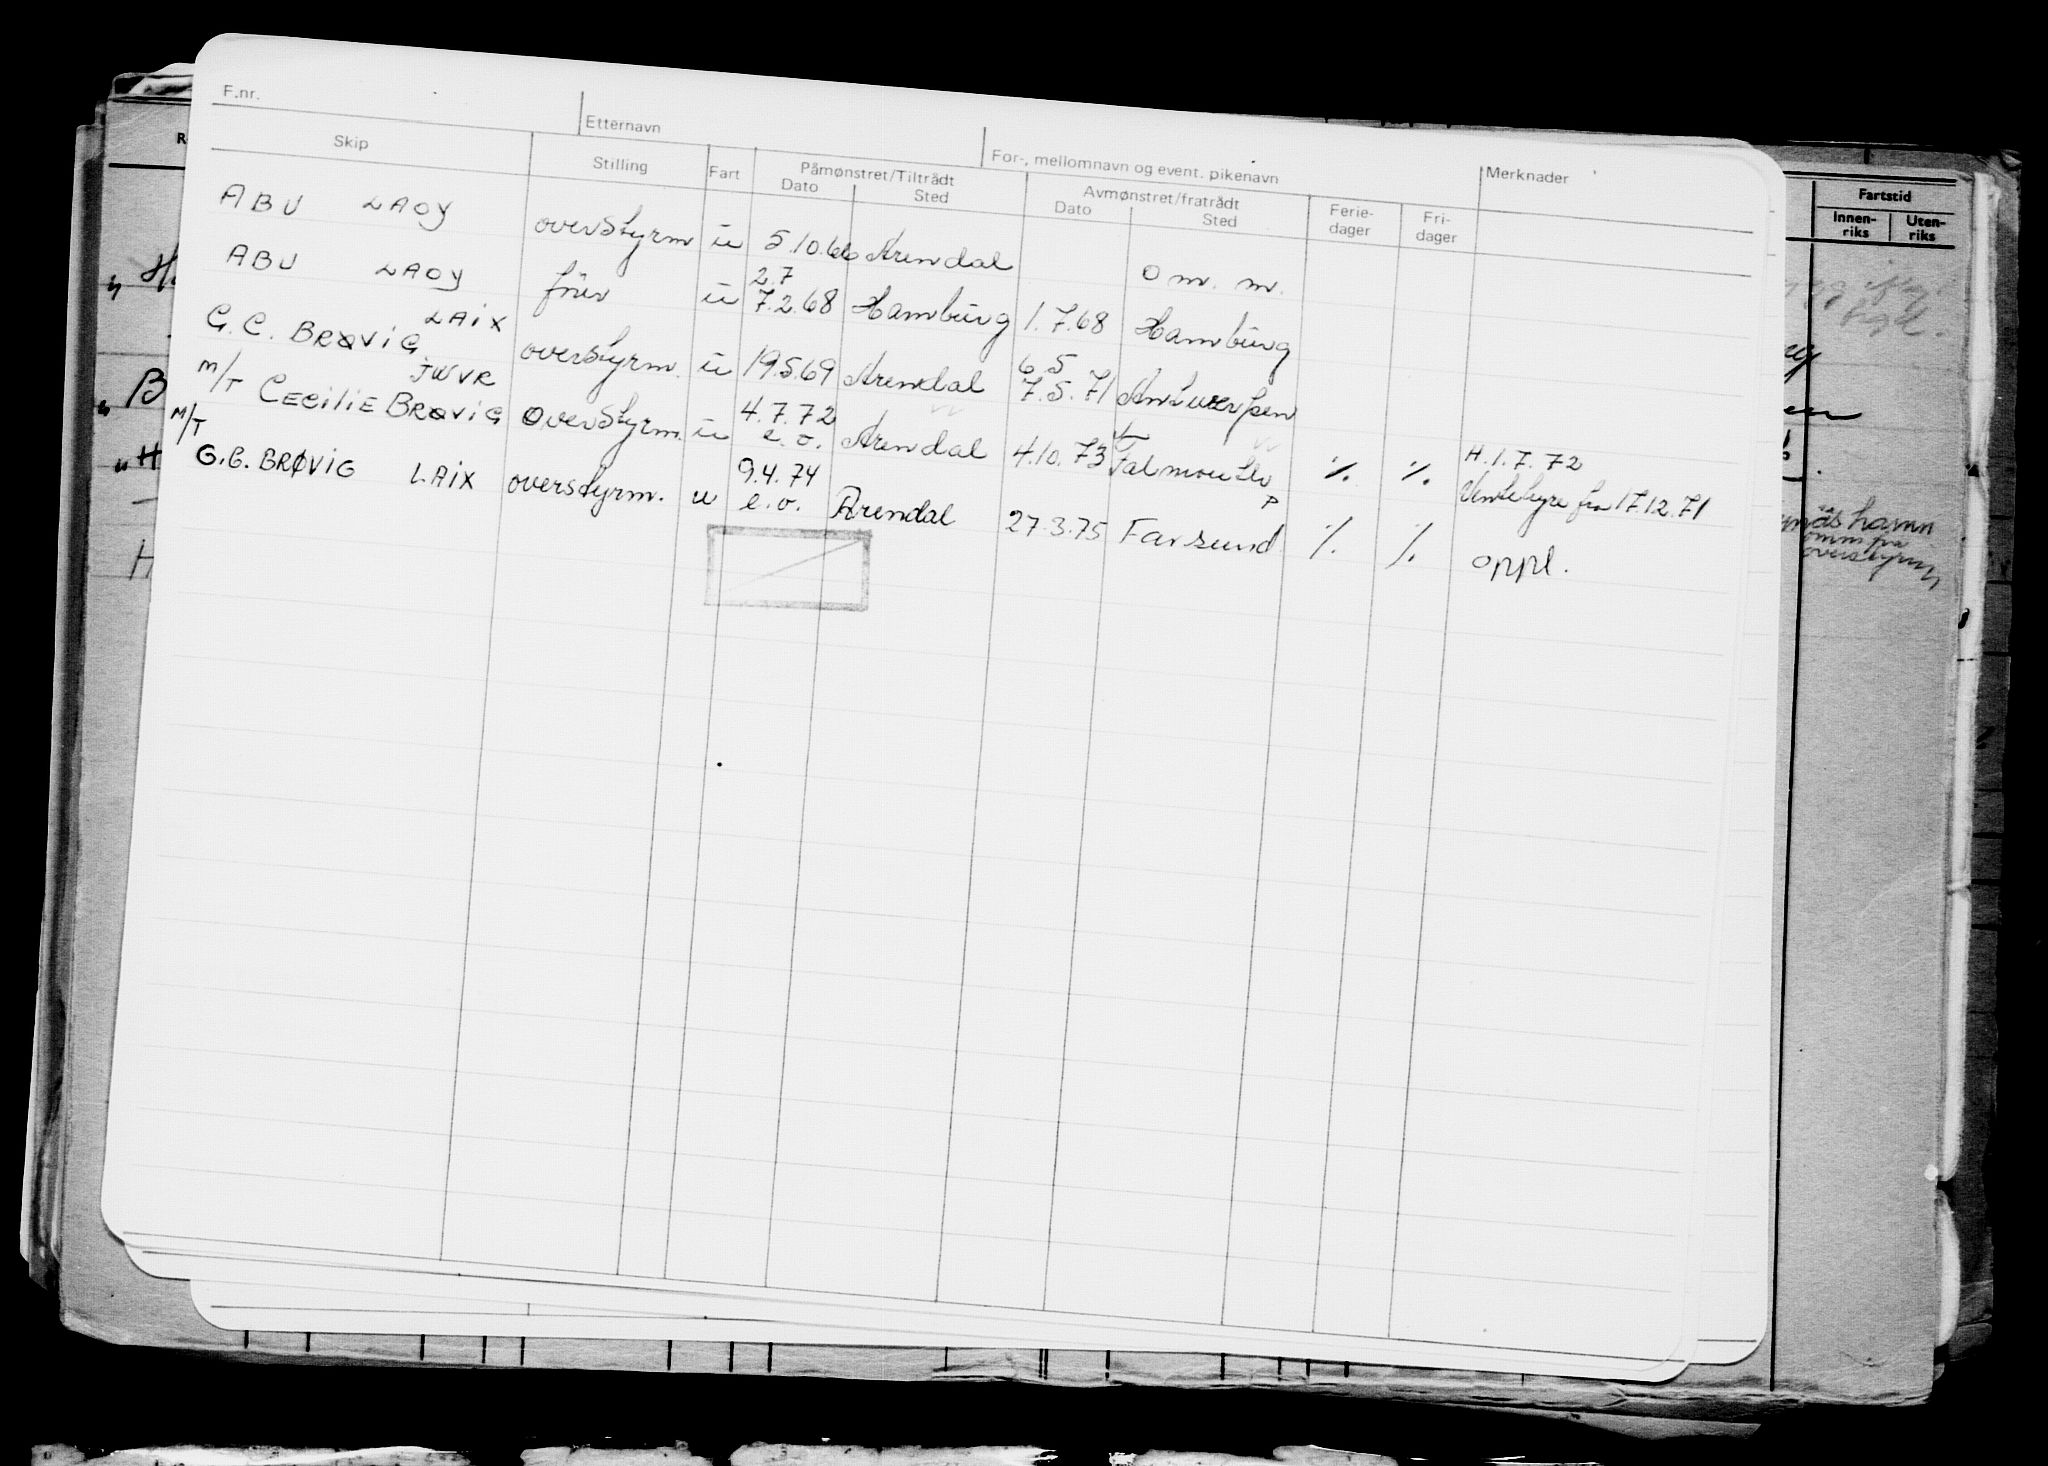 F.nr.
Etternavn
For-, mellomnavn og event. pikenavn
Merknader
Skip
Stilling
Fart
Påmønstret/Tiltrådt
Dato
Sted
Avmønstret/fratrådt
Dato
Sted
Ferie-
dager
Fri-
dager
Fartstid
Innen-
riks
Uten-
riks
ABU LAOY overstyrm u 5.10.66 Arendal o m. m.
2.7
ABU LAOY fører u 7.2.68 Hamburg 1.7.68 Hamburg
LAIX 6.5
G.C. BRØVIG overstyrm. u 19.5.69 Arendal 7.5.71 Antwerpen
JWVR 4.7.72 H.1.7.72
M/T CECILIE BRØVIG overstyrm. u e.o. Arendal 4.10.73 Falmouth % % Ventehyre fra 17.12.71
M/T 9.4.74 P
G.B. BRØVIG LAIX overstyrm. u e.o. Arendal 27.3.75 Farsund % % oppl.
havn
omm fra
overstyrm